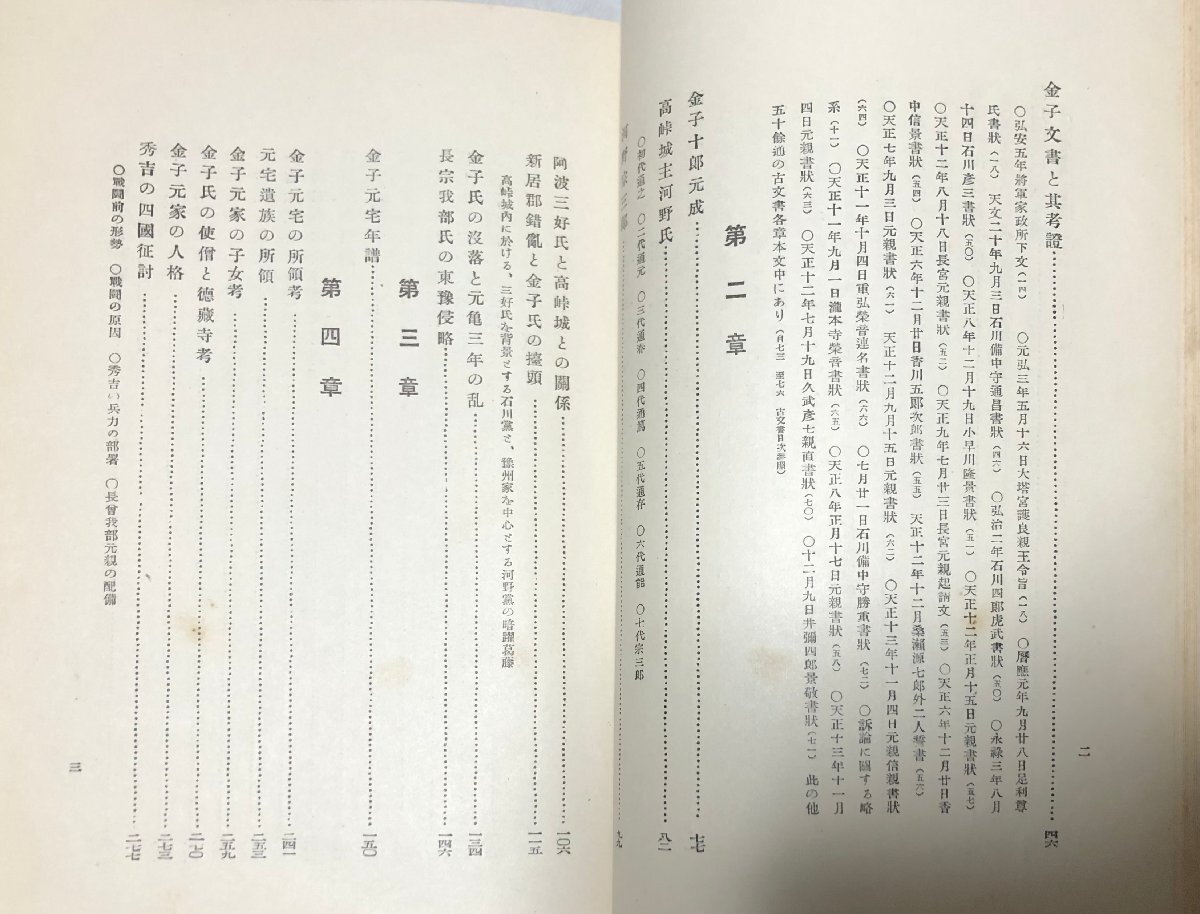 金子文書と其考證……四六
〇弘安五年將軍家政所下文(一四) 〇元弘三年五月十六日大塔宮護良親王令旨(一八) 〇曆應元年九月廿八日足利尊
氏書狀(一八) 天文二十年九月三日石川備中守通昌書狀(四六) 〇弘治二年石川四郎虎武書狀(五〇) 〇永祿三年八月
十四日石川彥三書狀(五〇) 〇天正八年十二月十九日小早川隆景書狀(五一) 〇天正十二年正月十五日元親書狀(五七)
〇天正十二年八月十八日長宮元親書狀(五二) 〇天正九年七月廿三日長宮元親起請文(五三) 〇天正六年十二月廿日香
中信景書狀(五四) 〇天正六年十二月廿日香川五郎次郎書狀(五五) 天正十二年十二月桑瀨源七郎外二人誓書(五六)
〇天正七年九月三日元親書狀(六一) 天正十二年九月十五日元親書狀(六二) 〇天正十三年十一月四日元親信親書狀
(六四) 〇天正十一年十月四日重弘榮音連名書狀(六六) 〇七月廿一日石川備中守勝重書狀(七二) 〇訴論に關する略
系(十一) 〇天正十一年九月一日瀧本寺榮音書狀(六五) 〇天正八年正月十七日元親書狀(五八) 〇天正十三年十一月
四日元親書狀(六三) 〇天正十二年七月十九日久武彥七親直書狀(七〇) 〇十二月九日井彌四郎景敬書狀(七一) 此の他
五十餘通の古文書各章本文中にあり(自七三 至七六 古文書目次參照)
第二章
金子十郎元成……七七
高峠城主河野氏……八二
〇初代通之 〇二代通元 〇三代通春 〇四代通篤 〇五代通存 〇六代通能 〇十代宗三郎
河野宗三郎……九
阿波三好氏と高峠城との關係……一〇六
新居郡錯亂と金子氏の擡頭……一一五
高峠城內に於ける、三好氏を背景とする石川黨と、豫州家を中心とする河野黨の暗躍葛藤
金子氏の沒落と元亀三年の乱……一三四
長宗我部氏の東豫侵略……一四六
第三章
金子元宅年譜……一五〇
第四章
金子元宅の所領考……二四一
元宅遺族の所領……二五三
金子元家の子女考……二五九
金子氏の使僧と德藏寺考……二七〇
金子元家の人格……二七三
秀吉の四國征討……二七七
〇戰鬪前の形勢 〇戰鬪の原因 〇秀吉の兵力の部署 〇長曾我部元親の配備
二
三